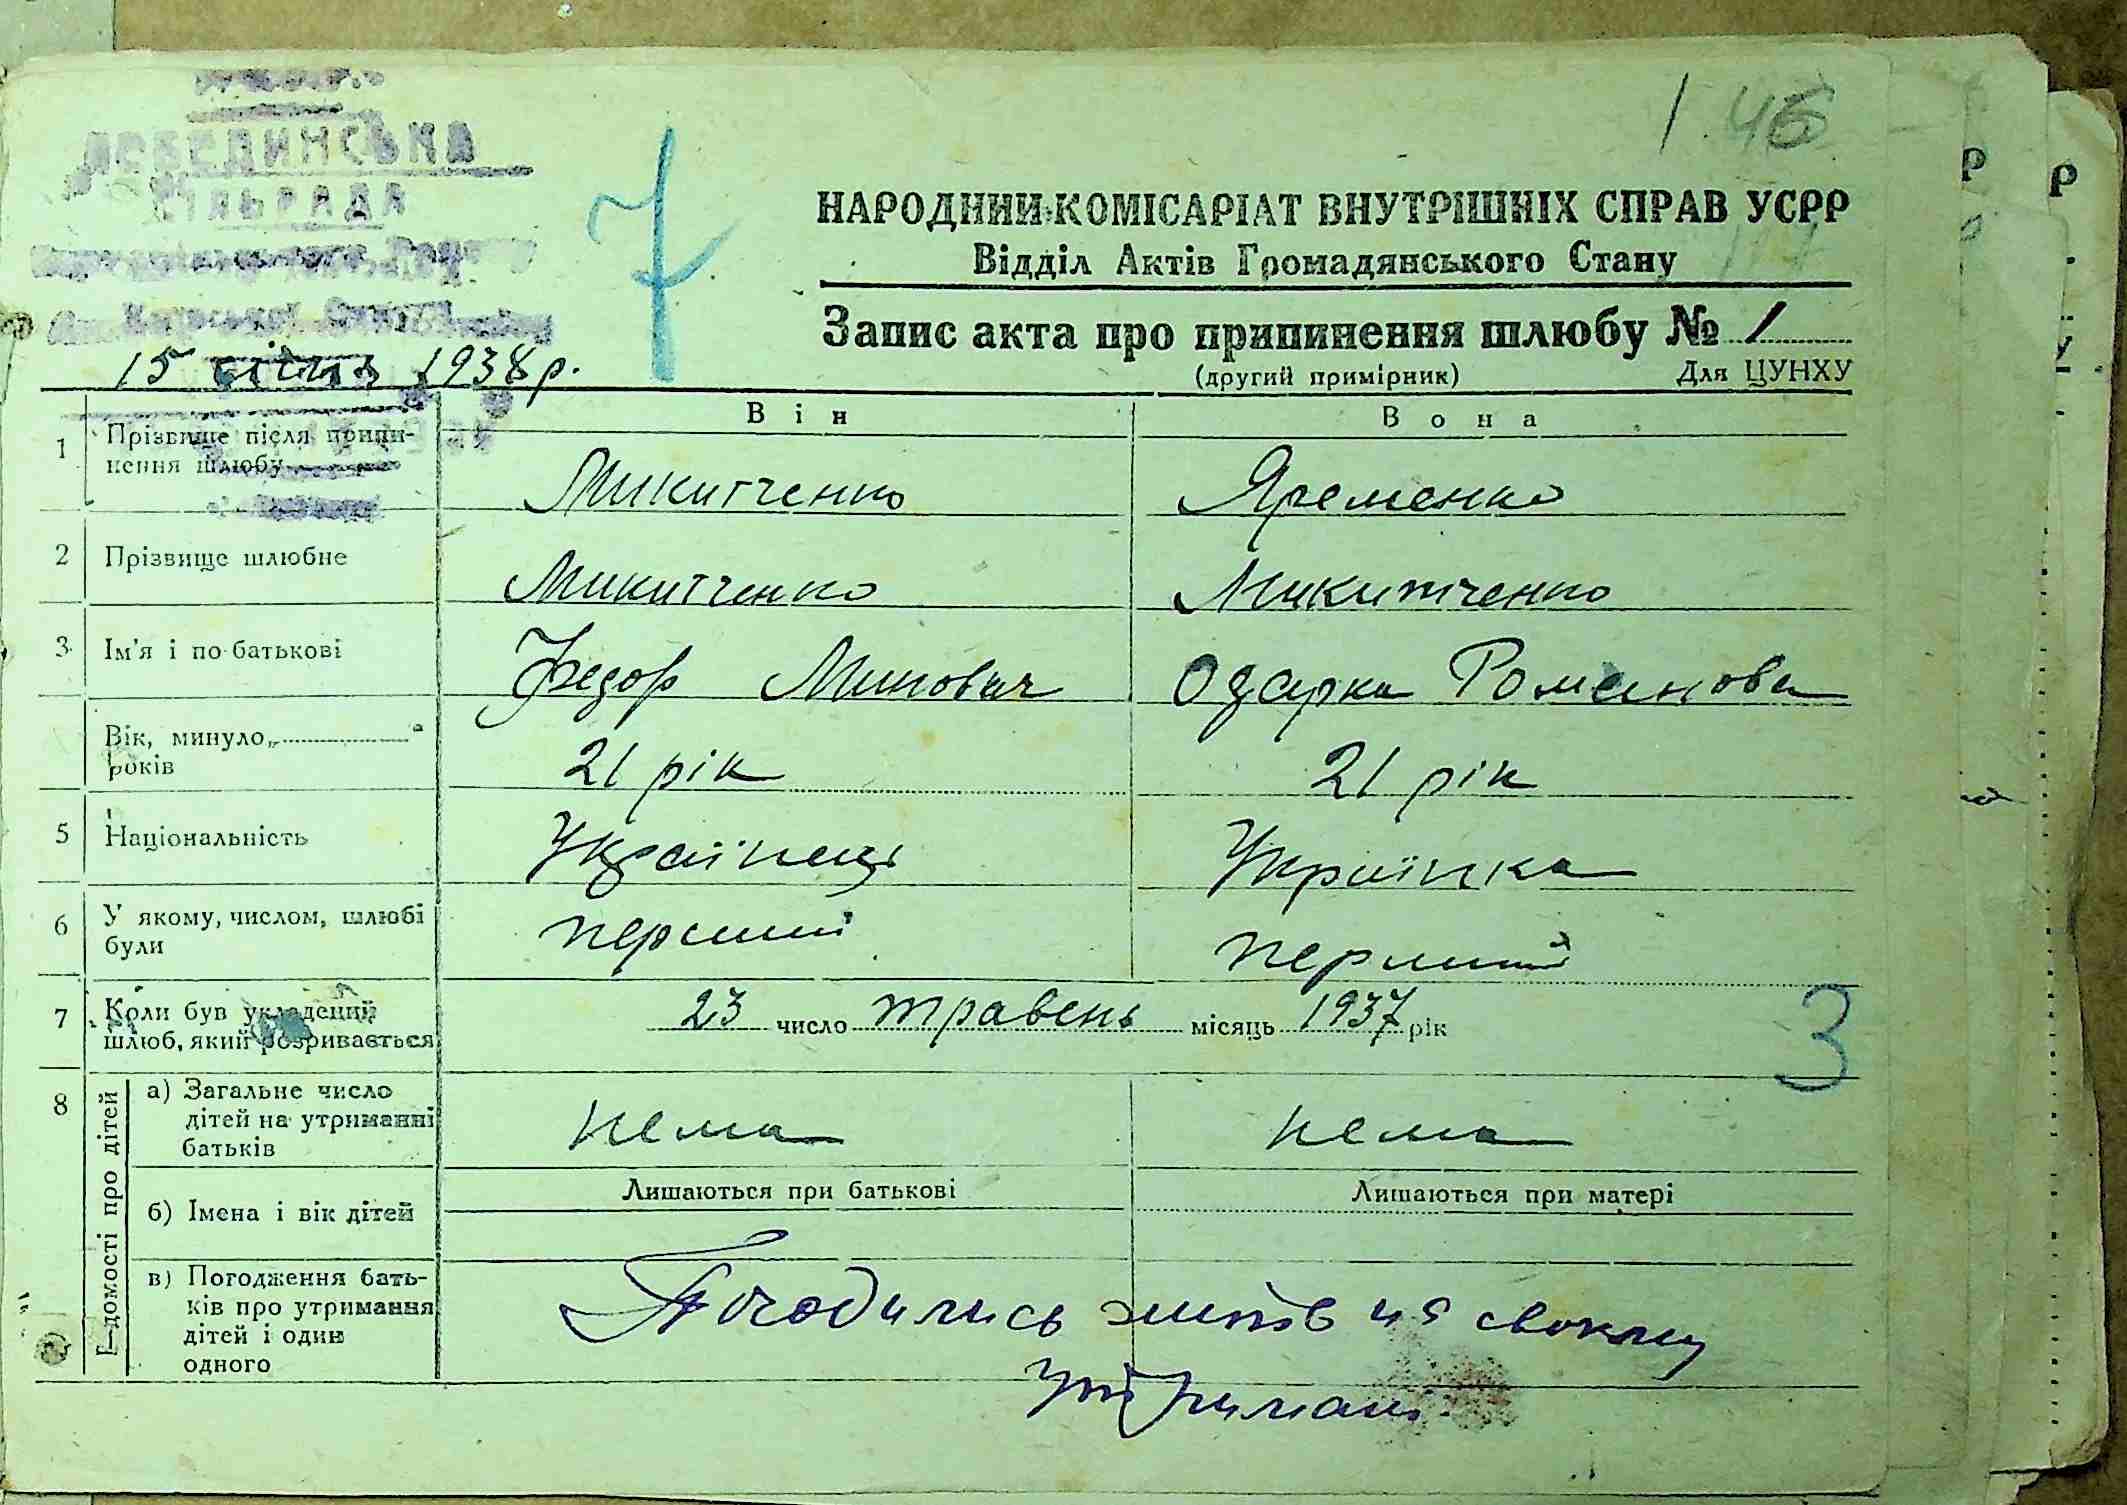 1.46
ЛЕБЕДИНСЬКА
СІЛЬРАДА
7
НАРОДНИЙ КОМІСАРІАТ ВНУТРІШНІХ СПРАВ УСРР
Відділ Актів Громадянського Стану
Запис акта про припинення шлюбу № 1
15 січня 1938 р.
(другий примірник) Для ЦУНХУ
Він Вона
1 Прізвище після припи-
нення шлюбу
Микитченко Яременко
2 Прізвище шлюбне
Микитченко Микитченко
3 Ім'я і по-батькові
Федор Минович Одарка Романова
Вік, минуло „ “
років
21 рік 21 рік
5 Національність
Українець Українка
6 У якому, числом, шлюбі
були
перший перший
7 Коли був укладений
шлюб, який розривається
23 число травень місяць 1937 рік
3
8 Відомості про дітей
а) Загальне число
дітей на утриманні
батьків
нема нема
Лишаються при батькові Лишаються при матері
б) Імена і вік дітей
в) Погодження бать-
ків про утримання
дітей і один
одного
Погодились на своєму
утримані